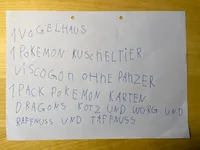 1 VOGELHAUS
1 POKEMON KUSCHELTIER
VISCOGON OHNE PANZER
1 PACK POKEMON KARTEN
DRAGONS KOTZ UND WÜRG UND
RAFFNUSS UND TAFFNUSS